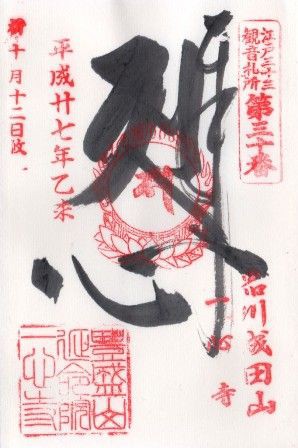 江戸三十三
観音札所
第三十番
品川成田山
一心寺
平成廿七年乙未
十月十二日
豐盛山
延命院
一心寺